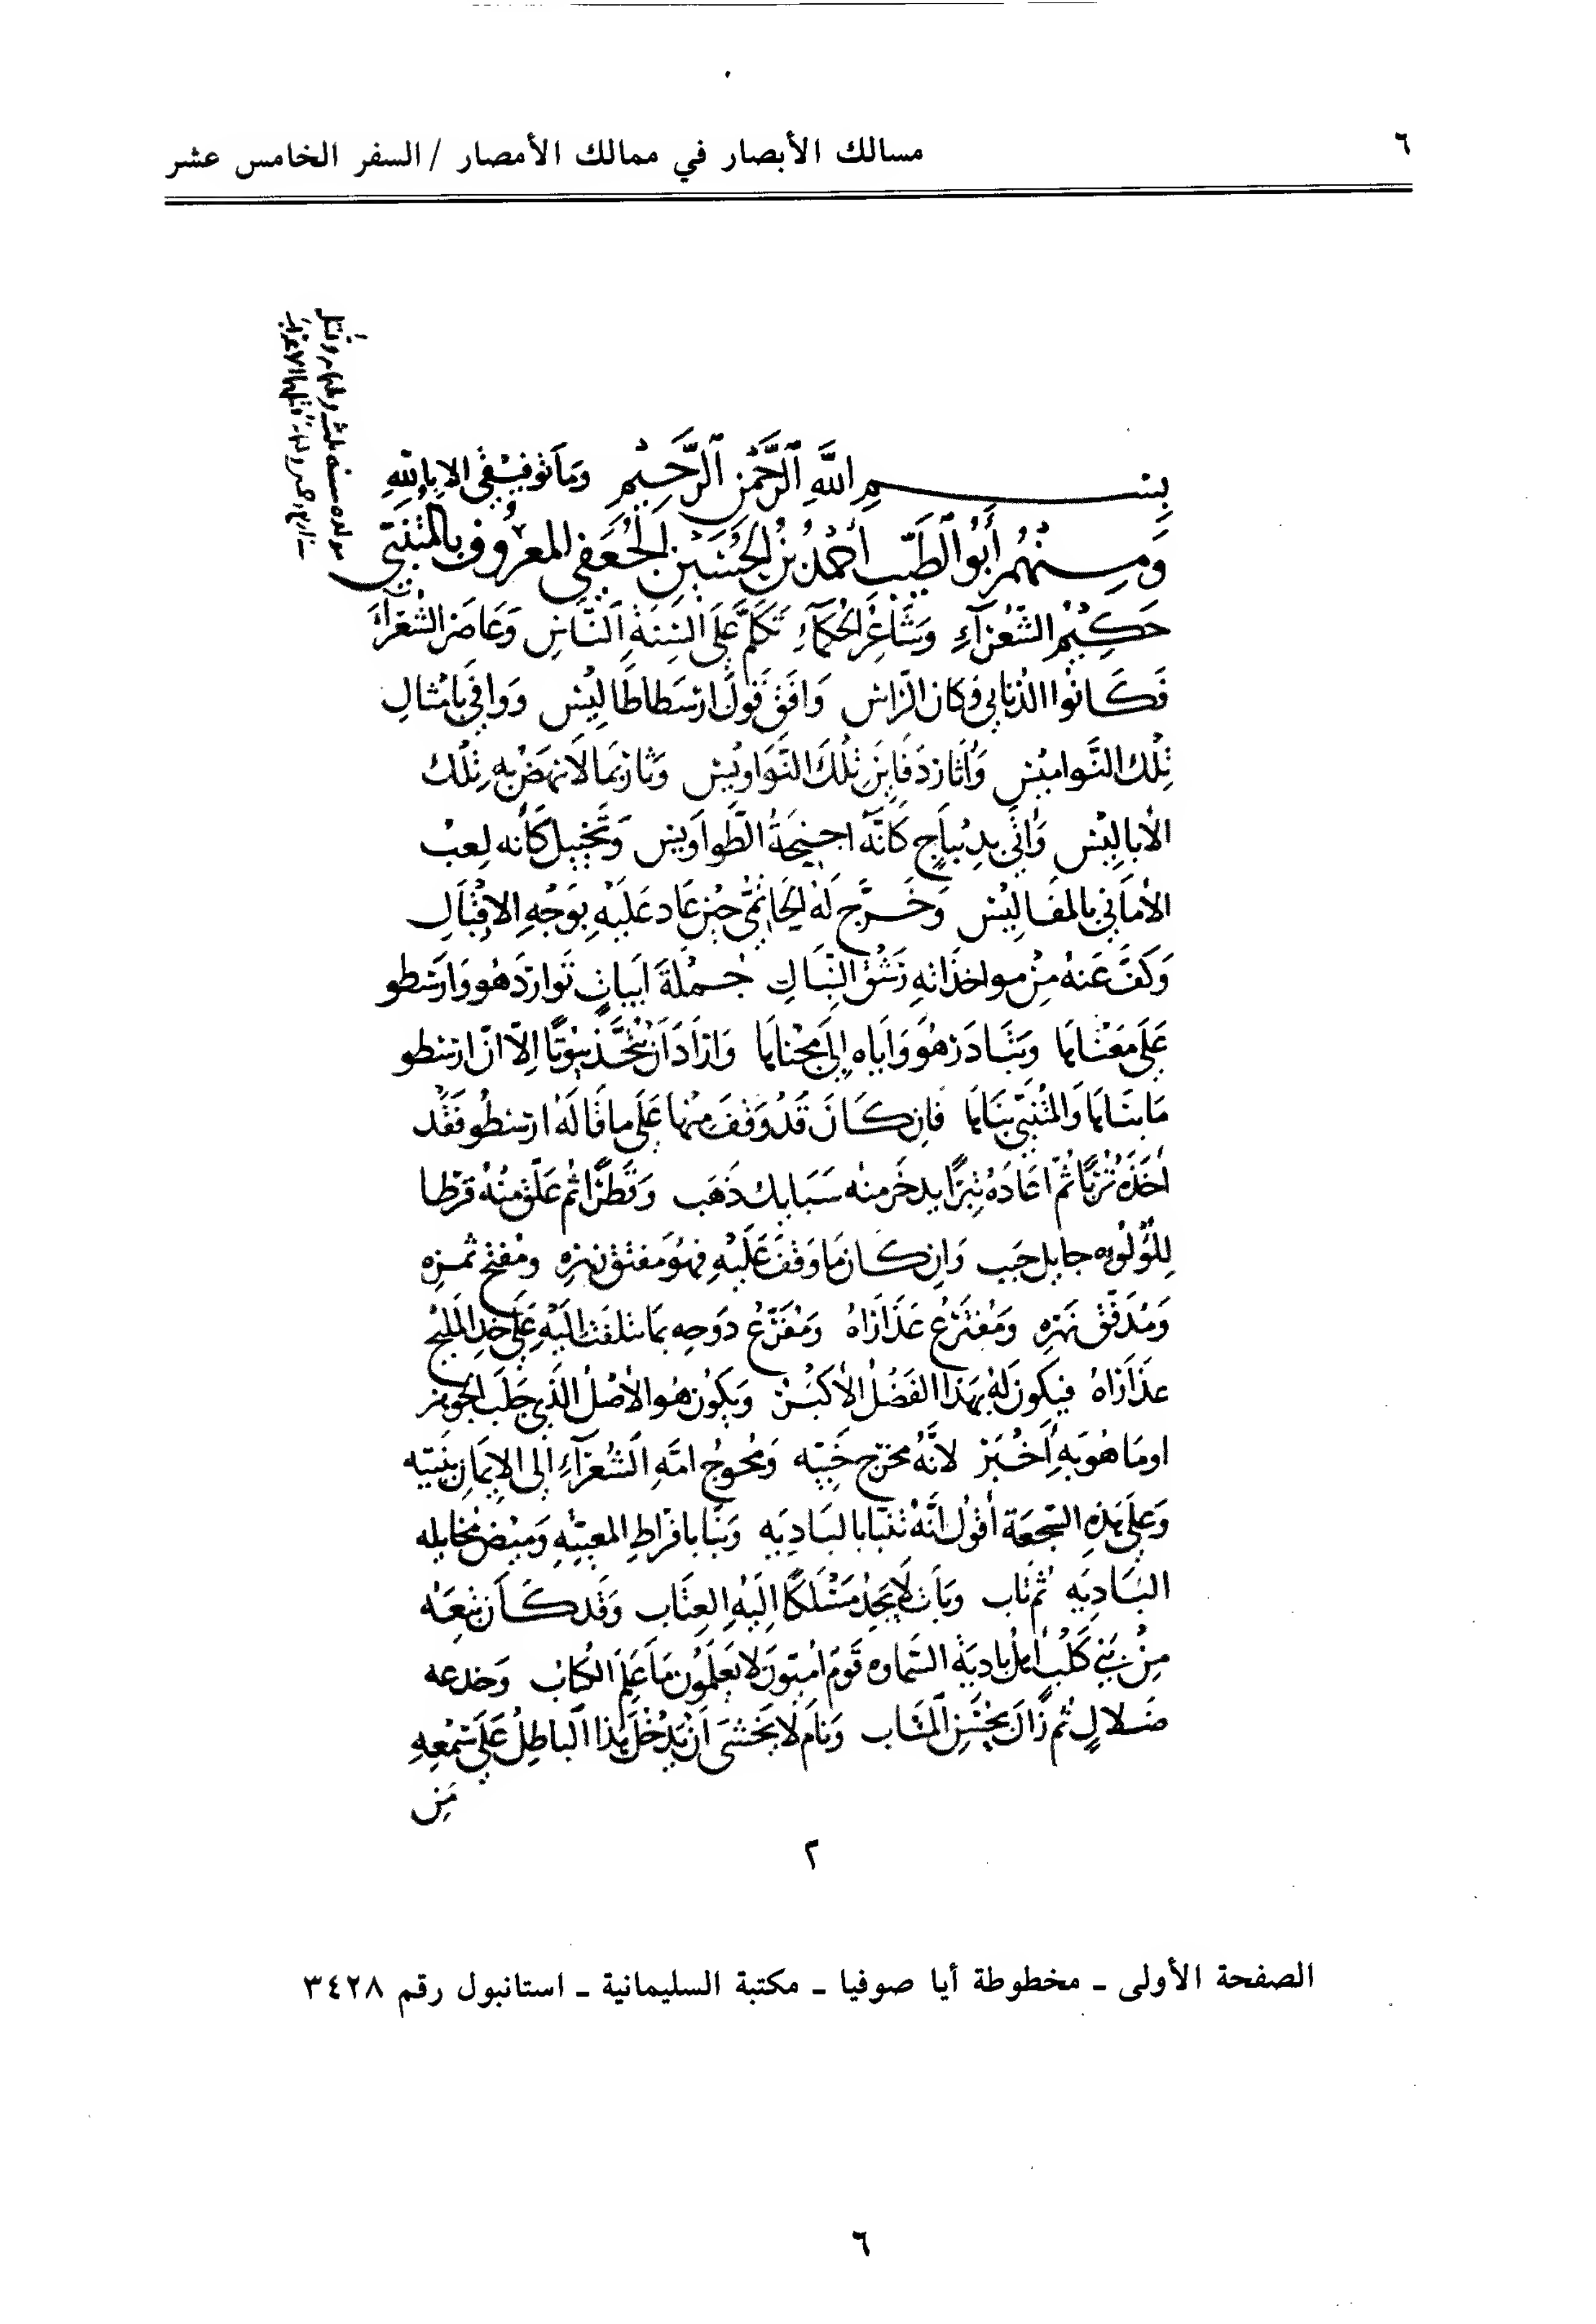 ٦
مسالك الأبصار في ممالك الأمصار / السفر الخامس عشر
مولده سنة ثلث وثلثمائة وقتل
بسم الله الرحمن الرحيم وما توفيقي الا بالله
ومنهم أبو الطيب أحمد بن الحسين الجعفي المعروف بالمتنبي
حكيم الشعرآء وشاعر الحكمآء تكلم على السنة الناس وعاصر الشعرآء
فكانوا الذنابي وكان الراس وافق قول ارسطاطاليس ووافى بامثال
تلك النواميس وأثار دفاين تلك النواويس وثار بما لا نهض به تلك
الأباليس وأتى بديباج كأنه اجنحة الطواويس وتخييل كأنه لعب
الأماني بالمفاليس وخرج له الحاتمي حين عاد عليه بوجه الاقبال
وكف عنه من مواخذاته رشق النبال جملة ابيات توارد هو وارسطو
على معناها وتبادر هو واياه إلى مجناها واراد أن يتخذ بيوتا إلا ان ارسطو
ما بناها والمتنبي بناها فان كان قد وقف منها على ما قاله ارسطو فقد
أخذه تربا ثم اعاده تبرا يدخر منه سبايك ذهب وقطرا ثم علق منه قرطا
للؤلؤه حبب وان كان ما وقف عليه فهو مفتق نهره ومفتح ثمره
ومدفق نهره ومفترع عذاراه ومفرع دوحه بما تلفت اليه على خد المليح
عذاراه فيكون له بهذا الفضل الأكبر ويكون هو الأصل الذي جلب الجوهر
اوما هو به أخبر لانه مخرج خبيه ومحوج امة الشعرآء إلى الايمان بنبيه
وعلى هذه السجعة أقول انه تنبا بالباديه ونبا بافراط المعيته وميض مخايله
الباديه ثم تاب وبات لا يجد مسلكا اليه العتاب وقد كان تبعه
من بني كلب أهل بادية السماوه قوم اميون لا يعلمون ما علم الكتاب وخدعه
ضلال ثم زال بحسن المتاب ونام لا يخشى أن يدخل هذا الباطل على سمعه
من
٢
الصفحة الأولى ـ مخطوطة أيا صوفيا ـ مكتبة السليمانية ـ استانبول رقم ٣٤٢٨
٦